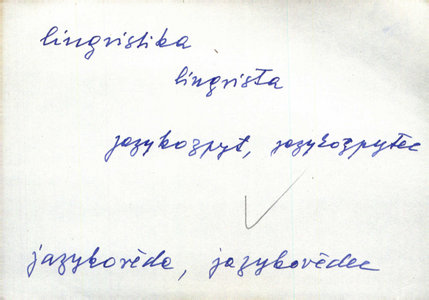 lingvistika
lingvista
jazykozpyt, jazykozpytec
jazykověda, jazykovědec